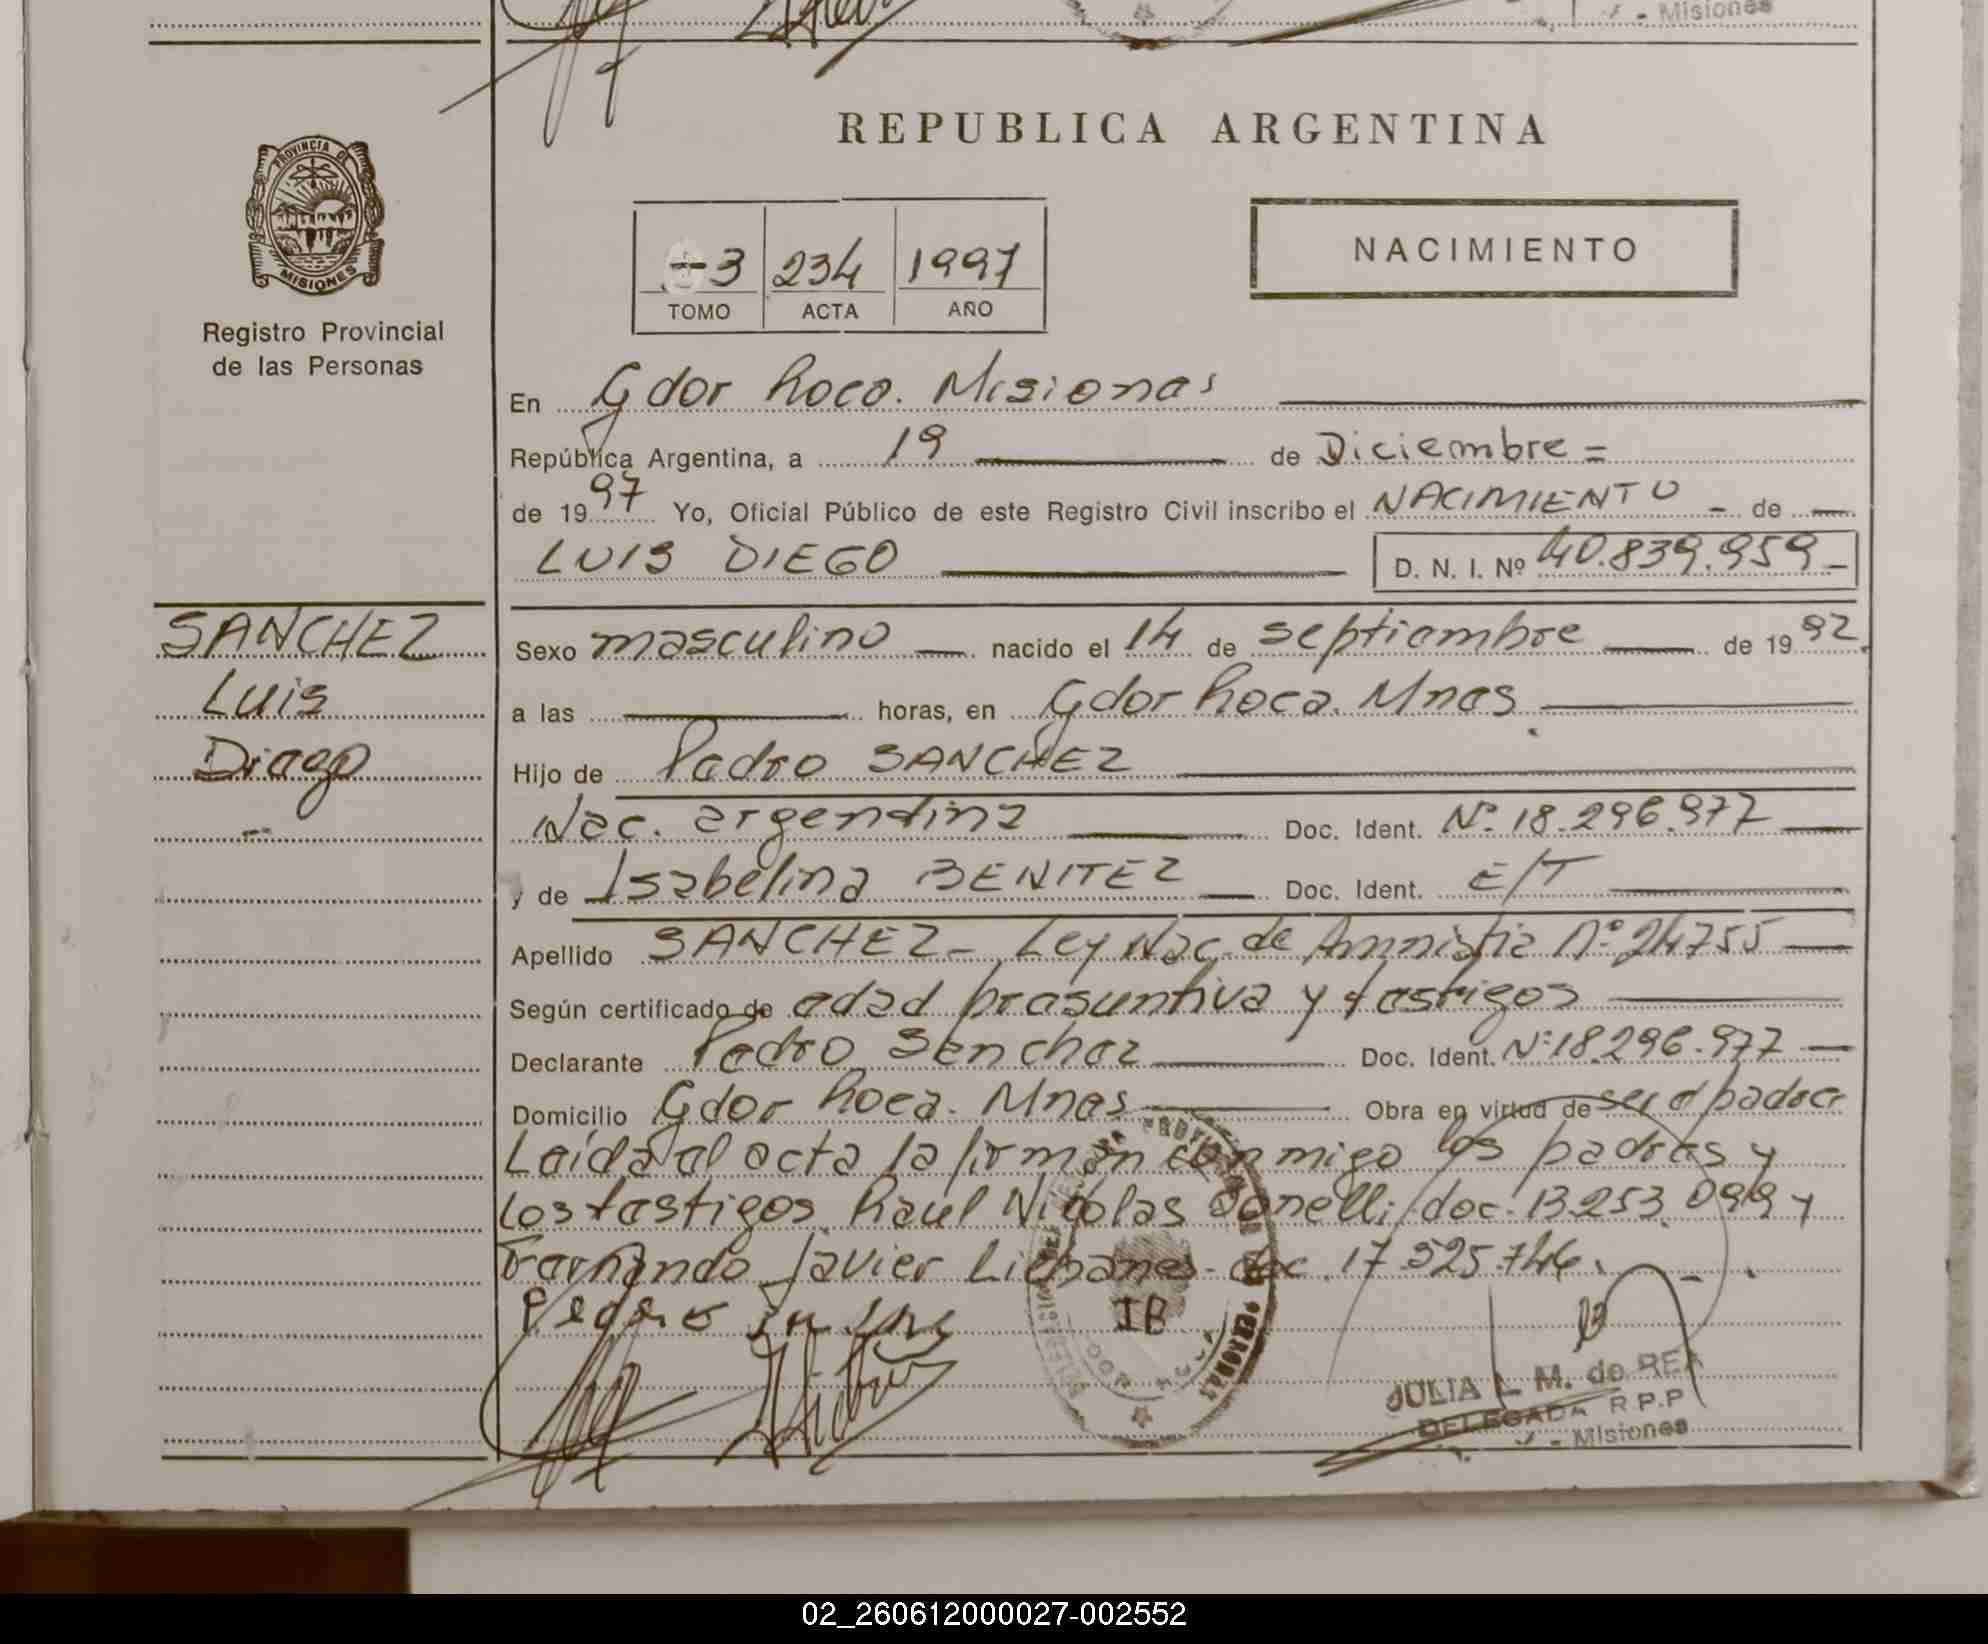 - Misiones
REPUBLICA ARGENTINA
PROVINCIA DE
MISIONES
Registro Provincial
de las Personas
3 234 1997
TOMO ACTA AÑO
NACIMIENTO
En Gdor Roca. Misiones
República Argentina, a 19 de Diciembre =
de 1997 Yo, Oficial Público de este Registro Civil inscribo el NACIMIENTO - de
LUIS DIEGO D. N. I. Nº 40.839.959
SANCHEZ
Luis
Diego
Sexo masculino nacido el 14 de septiembre de 1992
a las horas, en Gdor Roca. Mnes.
Hijo de Pedro SANCHEZ
Nac. argentina Doc. Ident. Nº 18.296.977
y de Isabelina BENITEZ Doc. Ident. E/T
Apellido SANCHEZ - Ley Nac. de Amnistia Nº 24755
Según certificado de edad presuntiva y testigos
Declarante Pedro Sanchez Doc. Ident. Nº 18.296.977
Domicilio Gdor Roca. Mnes Obra en virtud de ser el padre
Leída el acta la firman conmigo los padres y
los testigos. Raul Nicolas doc. 13.253.099 y
Fernando Javier doc. 17.525.746.
Pedro
IB
JULIA L. M. de REA
DELEGADA R.P.P
- Misiones
02_260612000027-002552